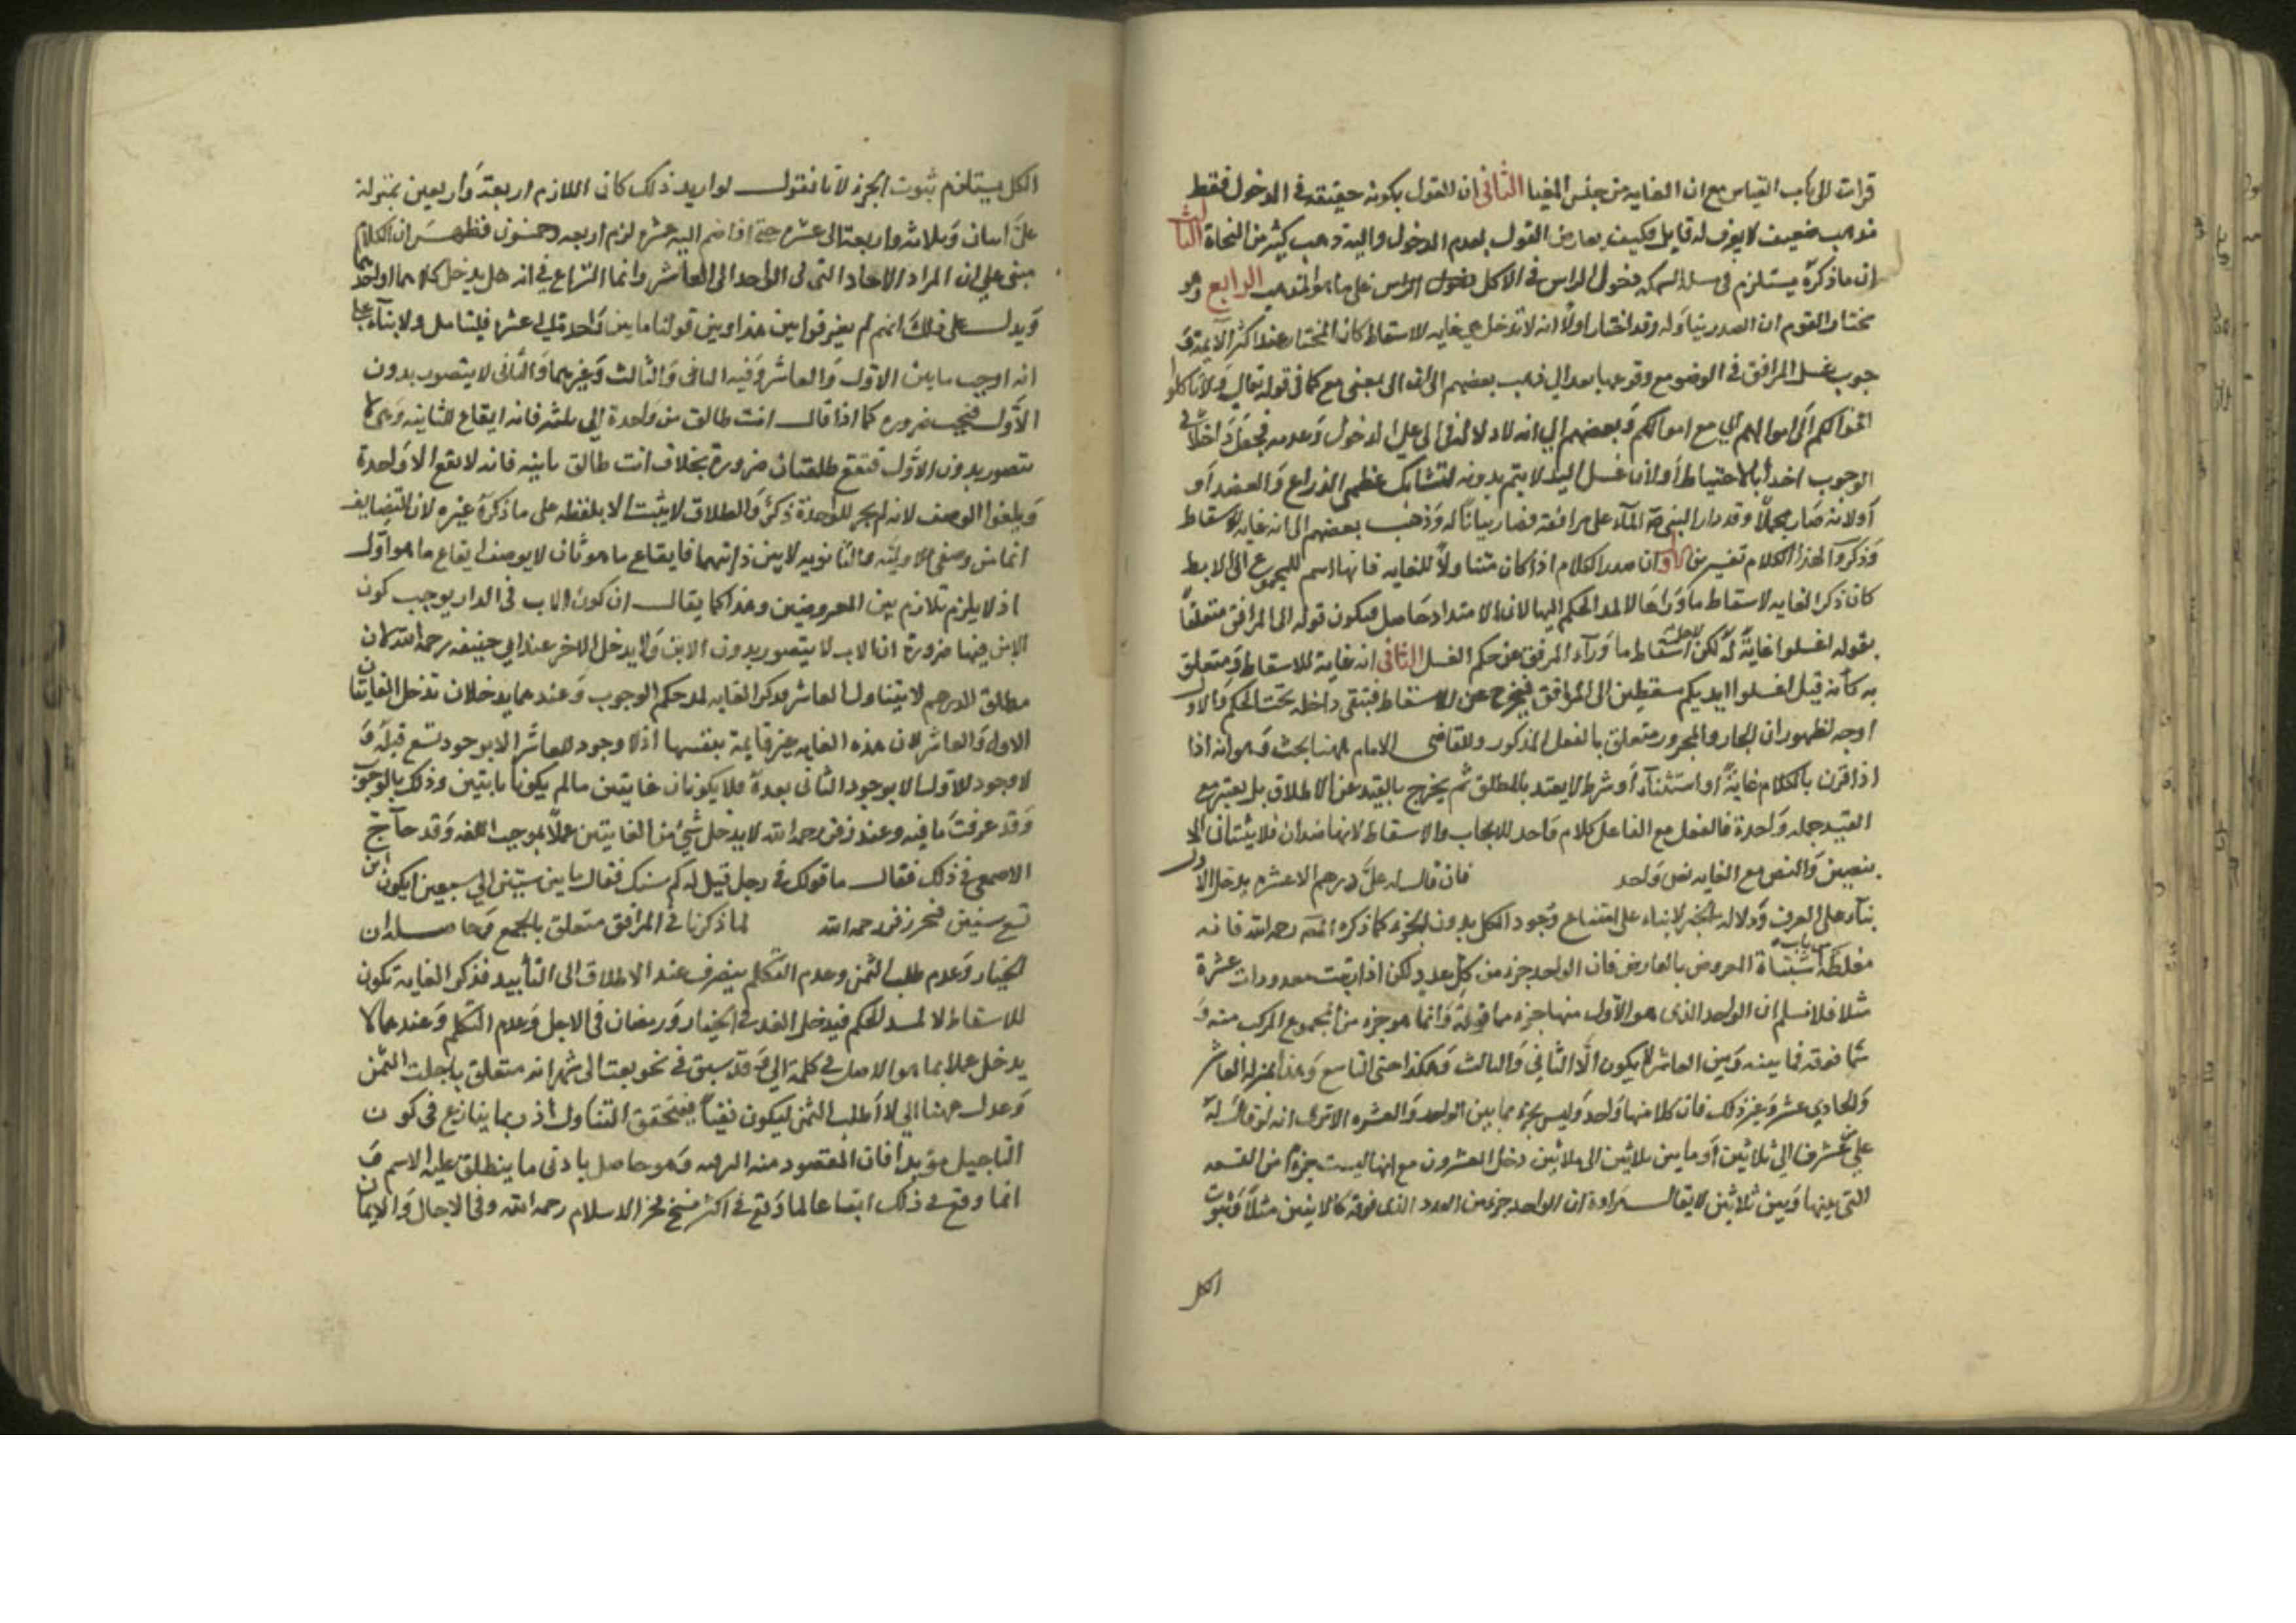 قرات الى باب القياس مع ان الغايه من جنس المغيا الثانى ان القول بكونه حقيقه فى الدخول فقط
مذهب ضعيف لا يعرف له قايل فكيف يعارض القول بعدم الدخول واليه ذهب كثير من النحاة الثالث
ان ماذكره يستلزم فى مسله السمكه دخول الراس فى الاكل على ما هو المذهب الرابع وهو
مختار القوم ان الصدر يتناوله وقد اختار اولا انه لا تدخل غايه للاسقاط كان المختار عند اكثر الايمة وَ
جوب غسل المرافق فى الوضو مع وقوعها بعد الى ذهب بعضهم الى ان الى بمعنى مع كما فى قوله تعالى ولا تاكلوا
اموالهم الى اموالكم اي مع اموالكم وبعضهم الي انه لا دلاله فى الى على الدخول وعدمه فجعل داخلا فى
الوجوب اخذا بالاحتياط او لان غسل اليد لا يتم بدونه لتشابك عظمى الذراع والعضد او
اولانه صار مجملا وقد دار النبي الماء على مرافقه فصار بيانا له وذهب بعضهم الى انه غايه للاسقاط
وذكروا لهذا الكلام تفسيرين الاول ان صدر الكلام اذا كان متناولا للغايه فانها اسم للمجموع الى الابط
كان ذكر الغايه لاسقاط ما وراها لا لمد الحكم اليها لان الامتداد حاصل فيكون قوله الى المرافق متعلقا
بقوله اغسلوا غاية له لكن لاجل اسقاط ما وراء المرفق عن حكم الغسل الثانى انه غاية للاسقاط ومتعلق
به كانه قيل اغسلوا ايديكم مسقطين الى المرافق فيخرج عن الاسقاط فتبقى داخله تحت الحكم والاول
اوجه لظهور ان الجار والمجرور متعلق بالفعل المذكور وللقاضى الامام ههنا بحث وهو انه اذا
اذا قرن بالكلام غاية او استثناء او شرط لا يعتد بالمطلق ثم يخرج بالقيد عن الاطلاق بل يعتبر مع
القيد جمله واحدة فالفعل مع الفاعل كلام واحد للايجاب والاسقاط لانهما ضدان فلا يثبتان الا
بنصين والنص مع الغايه نص واحد فان قال له على درهم الا عشره يدخل الاول
بناء على العرف ودلاله لا بناء على امتناع وجود الكل بدون الجزء كما ذكره المصـ رحمه الله فانه
مغلطه من باب اشتباة المعروض بالعارض فان الواحد جزء من كل عدد لكن اذا رتبت معدودات عشرة
مثلا فلا نسلم ان الواحد الذى هو الاول منها جزء مما فوقه وانما هو جزء من المجموع المركب منه و
مما فوقه فما بينه وبين العاشر لا يكون الا الثاني والثالث وهكذا حتى التاسع وهذا بمنزلة العاشر
والحادي عشر وغير ذلك فان كلا منها واحد وليس بجزء مما بين الواحد والعشره الا ترى انه لو قال له
علي عشرون الي ثلاثين او ما بين ثلاثين الى ثلاثين دخل العشرون مع انها ليست جزءا من التسعه
التى بينها وبين ثلاثين لا يقال مراده ان الواحد جزء من العدد الذى فوقه كالاثنين مثلا وثبوت
الكل
الكل يستلزم ثبوت الجزء لانا نقول لو اريد ذلك كان اللازم اربعة واربعين بمنزلة
على اثنان وثلاثه واربعة الى عشره حتى اذا ضم اليه عشره لزم اربعه وخمسون فظهر ان الكلام
مبنى على ان المراد الاحاد التى من الواحد الى العاشر وانما النزاع فى انه هل يدخل كلاهما او احدهما
ويدل على ذلك انهم لم يفرقوا بين هذا وبين قولنا ما بين واحد الى عشر فليتامل ولا بناء على
انه اوجب ما بين الاول والعاشر وفيه الثانى والثالث وغيرهما والثانى لا يتصور بدون
الاول فيجب ضروره كما اذا قال انت طالق من واحدة الى ثلث فانه ايقاع للثانيه وهى لا
تتصور بدون الاول فتقع طلقتان ضرورة بخلاف انت طالق ثانيه فانه لا يقع الا واحدة
ويلغوا الوصف لانه لم يجر للواحدة ذكر والطلاق لا يثبت الا بلفظه على ما ذكره غيره لان التضايف
انما من وصفى الاوليه والثانويه لا بين ذاتهما فايقاع ما هو ثان لا يوصف ايقاع ما هو اول
اذ لا يلزم تلازم بين المعروضين وهذا كما يقال ان كون الاب فى الدار يوجب كون
الابن فيها ضرورة ان الاب لا يتصور بدون الابن ولا يدخل الاخر عند ابي حنيفه رحمه الله لان
مطلق الدرهم لا يتناول العاشر فذكر الغايه لمد حكم الوجوب وعندهما يدخلان تدخل الغايتان
الاول والعاشر لان هذه الغايه غير قايمة بنفسها اذ لا وجود للعاشر الا بوجود تسع قبله و
لا وجود للاول الا بوجود الثانى بعده فلا يكونان غايتين مالم يكونا ثابتين وذلك بالوجوب
وقد عرفت ما فيه وعند زفر رحمه الله لا يدخل شيء من الغايتين عملا بموجب اللغه وقد حاج
الاصمعى فى ذلك فقال ما قولك فى رجل قيل له كم سنك فقال ما بين ستين الى سبعين ايكون ابن
تسع سنين فتحير زفر رحمه الله لما ذكرنا فى المرافق متعلق بالجمع وحاصله ان
الخيار وعدم طلب الثمن وعدم التكلم ينصرف عند الاطلاق الى التأبيد فذكر الغايه تكون
للاسقاط لا لمد الحكم فيدخل الغد فى الخيار ورمضان فى الاجل وعدم التكلم وعندهما لا
يدخل عملا بما هو الاصل فى كلمة الى وقد سبق فى نحو بعت الى شهر انه متعلق باجلت الثمن
وعدل ههنا الى لا اطلب الثمن ليكون نفيا فيتحقق التناول اذ ربما ينازع فى كون
التاجيل مؤبدا فان المقصود منه الرفه وهو حاصل بادنى ما ينطلق عليه الاسم و
انما وقع فى ذلك اتباعا لما وقع فى اكثر نسخ فخر الاسلام رحمه الله وفى الاجال والايمان